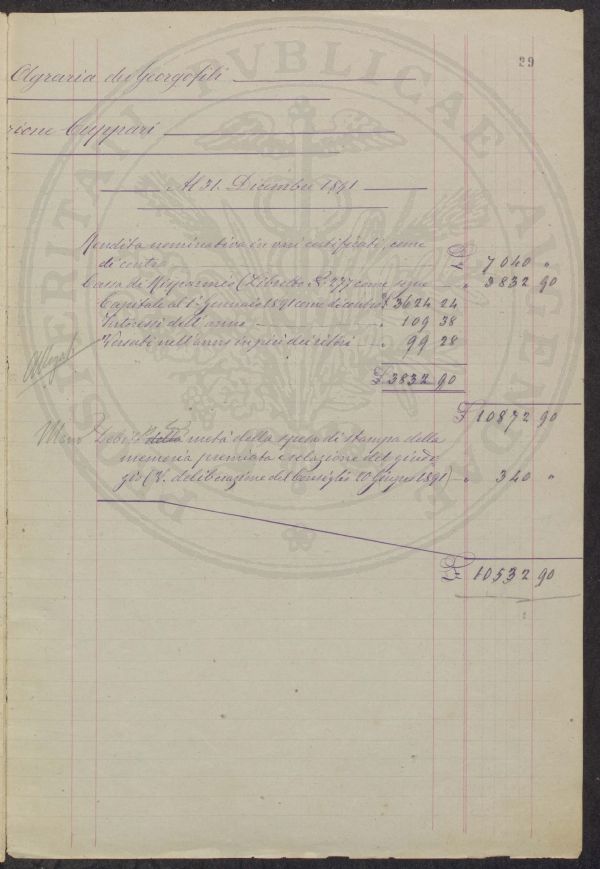 29
Agraria dei Georgofili
zione Cuppari
Al 31. Dicembre 1891
Rendita nominativa in vari certificati, come
di contro £ 7040 "
Cassa di Risparmio (Libretto N. 277 come segue " 3832 90
Capitale al 1° Gennaio 1891 come di contro £ 3624 24
Interessi dell'anno " 109 38
Versati nell'anno " 99 28
£ 3832 90
£ 10872 90
Meno Debito metà della spesa di stampa della
memoria premiata e relazione del giudi-
zio (V. deliberazione del Consiglio 20 Giugno 1891) " 340 "
£ 10532 90
PROSPERITATI PVBLICAE AVGENDAE